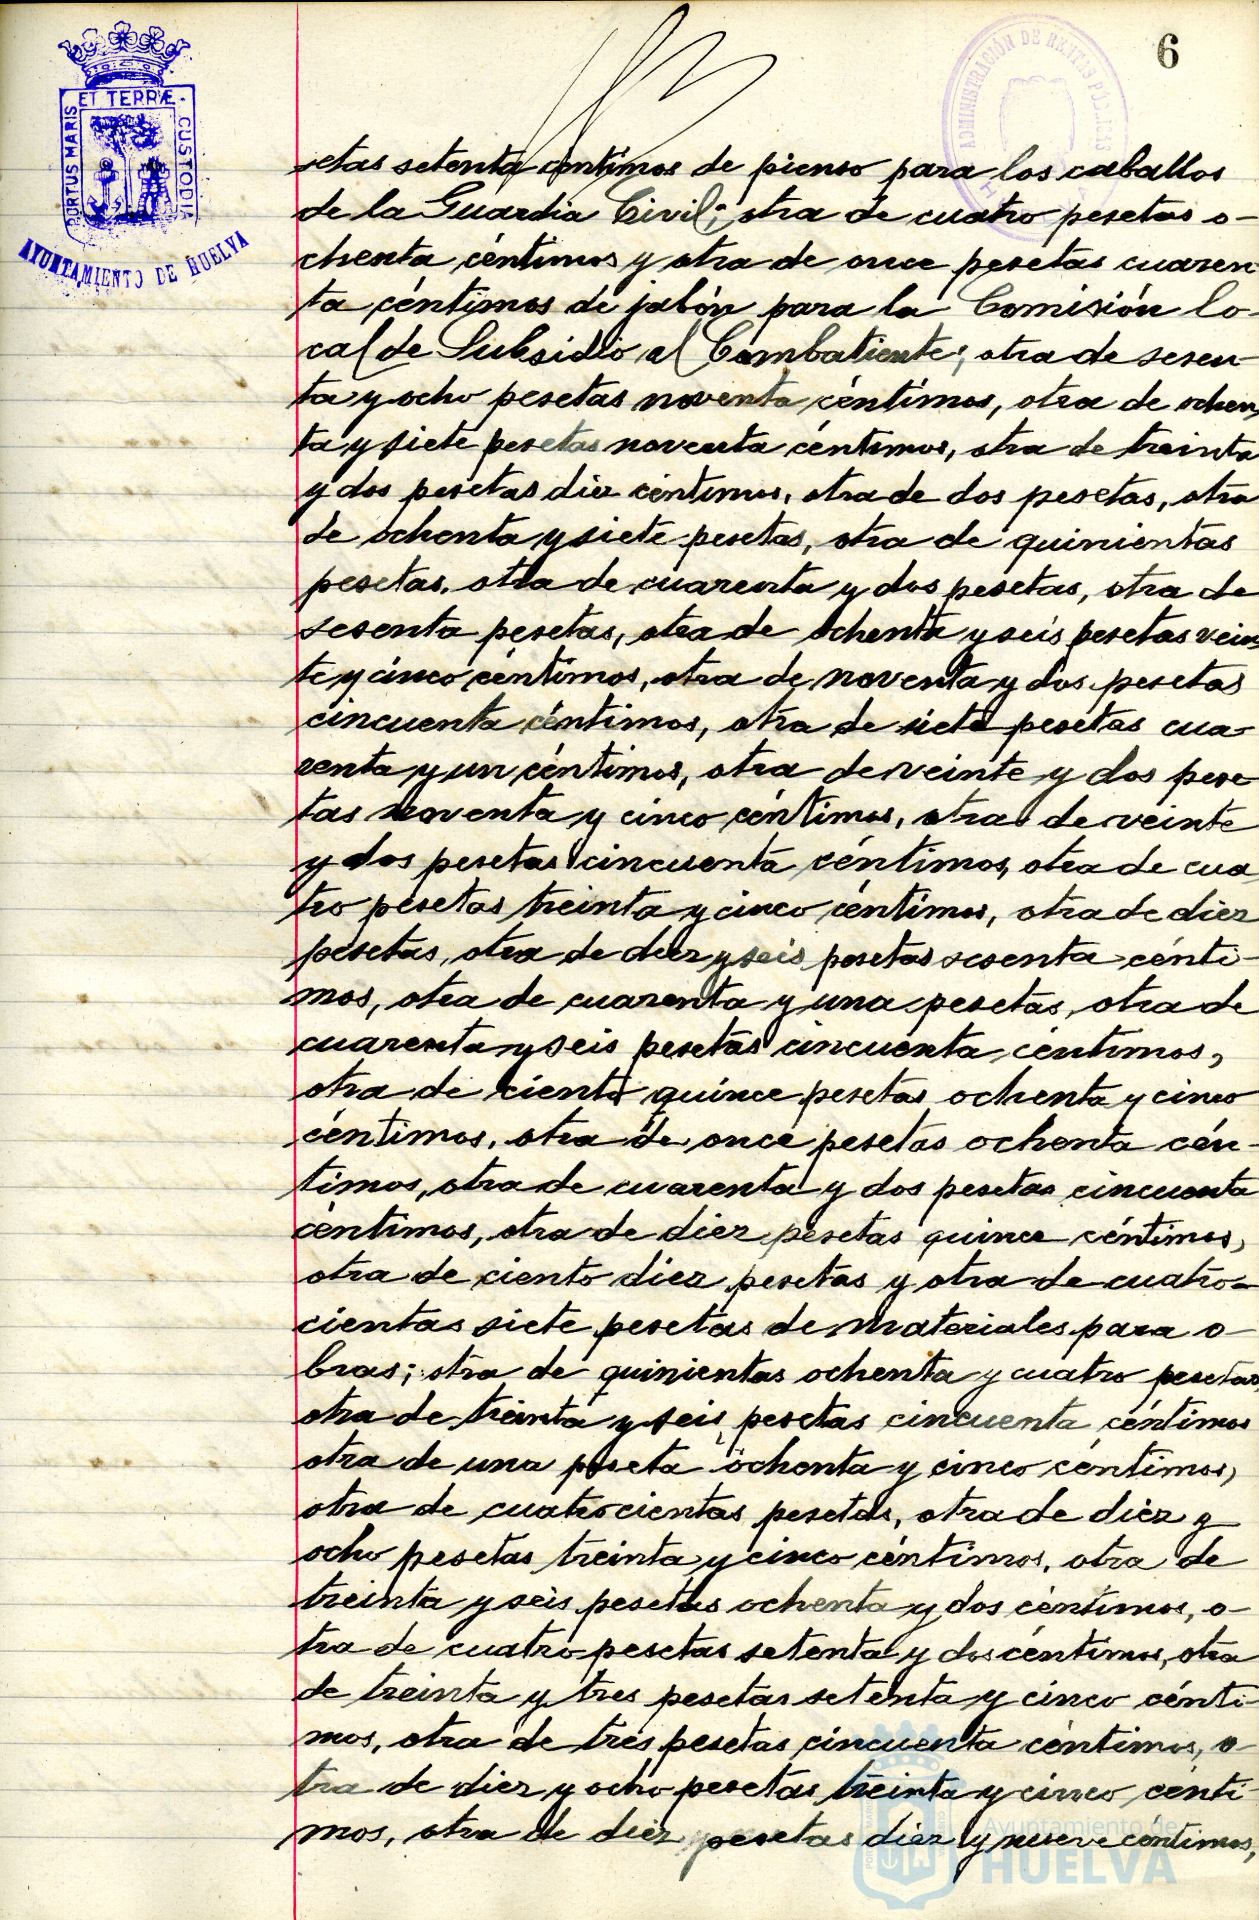 6
PORTUS MARIS ET TERRÆ CUSTODIA
AYUNTAMIENTO DE HUELVA
ADMINISTRACIÓN DE RENTAS PÚBLICAS
setas setenta céntimos de pienso para los caballos
de la Guardia Civil; otra de cuatro pesetas o-
chenta céntimos y otra de once pesetas cuaren
ta céntimos de jabón para la Comisión lo-
cal de Subsidio al Combatiente; otra de sesen-
ta y ocho pesetas noventa céntimos, otra de ochen
ta y siete pesetas noventa céntimos, otra de treinta
y dos pesetas diez céntimos, otra de dos pesetas, otra
de ochenta y siete pesetas, otra de quinientas
pesetas, otra de cuarenta y dos pesetas, otra de
sesenta pesetas, otra de ochenta y seis pesetas vein
te y cinco céntimos, otra de noventa y dos pesetas
cincuenta céntimos, otra de siete pesetas cua-
renta y un céntimos, otra de veinte y dos pese
tas noventa y cinco céntimos, otra de veinte
y dos pesetas cincuenta céntimos, otra de cua
tro pesetas treinta y cinco céntimos, otra de diez
pesetas, otra de diez y seis pesetas sesenta cénti-
mos, otra de cuarenta y una pesetas, otra de
cuarenta y seis pesetas cincuenta céntimos,
otra de ciento quince pesetas ochenta y cinco
céntimos, otra de once pesetas ochenta cén-
timos, otra de cuarenta y dos pesetas cincuenta
céntimos, otra de diez pesetas quince céntimos,
otra de ciento diez pesetas y otra de cuatro-
cientas siete pesetas de materiales para o-
bras; otra de quinientas ochenta y cuatro pesetas
otra de treinta y seis pesetas cincuenta céntimos
otra de una peseta ochenta y cinco céntimos,
otra de cuatrocientas pesetas, otra de diez y
ocho pesetas treinta y cinco céntimos, otra de
treinta y seis pesetas ochenta y dos céntimos, o-
tra de cuatro pesetas setenta y dos céntimos, otra
de treinta y tres pesetas setenta y cinco cénti-
mos, otra de tres pesetas cincuenta céntimos, o-
tra de diez y ocho pesetas treinta y cinco cénti-
mos, otra de diez pesetas diez y nueve céntimos,
Ayuntamiento de
HUELVA